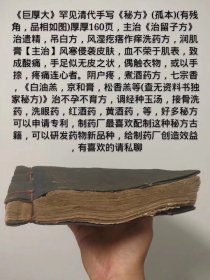 《巨厚大》罕见清代手写《秘方》(孤本)(有残
角，品相如图)厚厚160页，主治《治留子方》
治遗精，吊白方，风湿疙瘩作痒洗药方，润肌
膏【主治】风寒侵袭皮肤，血不荣于肌表，致
成酸痛，手足似无皮之状，偶触衣物，或以手
捺，疼痛连心者。阴户疼，煮酒药方，七宗香
，《白油羔，京和膏，松香羔等(查无资料书独
家秘方)》治不孕不育方，调经种玉汤，接骨洗
药，洗眼药，红酒药，黄酒药，等，好多秘方
可以申请专利，制药厂最喜欢配制这种秘方古
籍，可以研发药物新品种，给制药厂创造效益
，有喜欢的请私聊